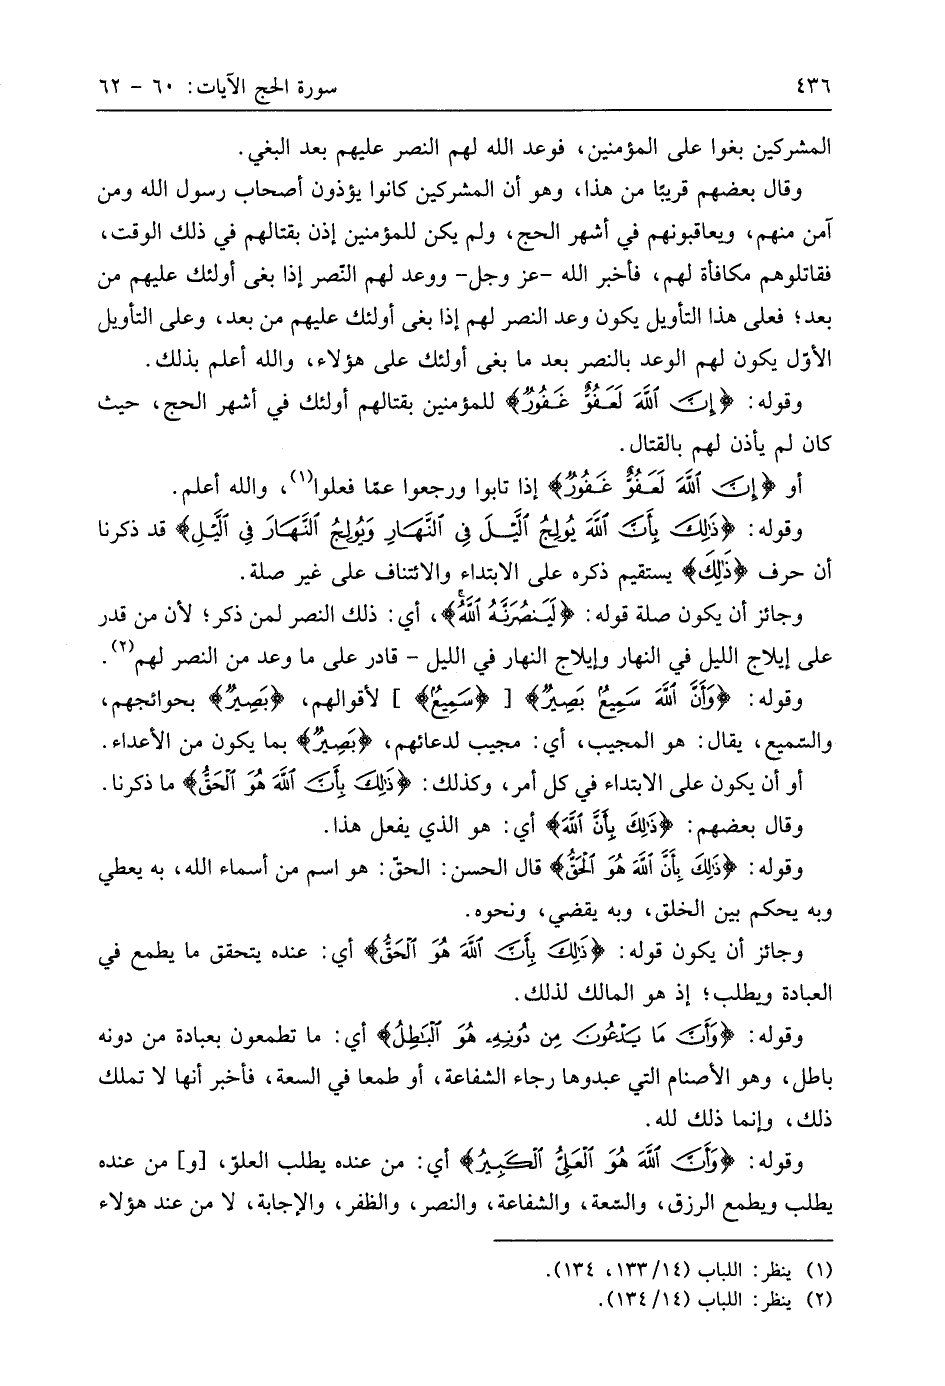 ٤٣٦ سورة الحج الآيات: ٦٠ - ٦٢
المشركين بغوا على المؤمنين، فوعد الله لهم النصر عليهم بعد البغي.
وقال بعضهم قريبًا من هذا، وهو أن المشركين كانوا يؤذون أصحاب رسول الله ومن
آمن منهم، ويعاقبونهم في أشهر الحج، ولم يكن للمؤمنين إذن بقتالهم في ذلك الوقت،
فقاتلوهم مكافأة لهم، فأخبر الله -عز وجل- ووعد لهم النّصر إذا بغى أولئك عليهم من
بعد؛ فعلى هذا التأويل يكون وعد النصر لهم إذا بغى أولئك عليهم من بعد، وعلى التأويل
الأوّل يكون لهم الوعد بالنصر بعد ما بغى أولئك على هؤلاء، والله أعلم بذلك.
وقوله: ﴿إِنَّ ٱللَّهَ لَعَفُوٌّ غَفُورٌ﴾ للمؤمنين بقتالهم أولئك في أشهر الحج، حيث
كان لم يأذن لهم بالقتال.
أو ﴿إِنَّ ٱللَّهَ لَعَفُوٌّ غَفُورٌ﴾ إذا تابوا ورجعوا عمّا فعلوا(١)، والله أعلم.
وقوله: ﴿ذَٰلِكَ بِأَنَّ ٱللَّهَ يُولِجُ ٱلَّيۡلَ فِي ٱلنَّهَارِ وَيُولِجُ ٱلنَّهَارَ فِي ٱلَّيۡلِ﴾ قد ذكرنا
أن حرف ﴿ذَٰلِكَ﴾ يستقيم ذكره على الابتداء والائتناف على غير صلة.
وجائز أن يكون صلة قوله: ﴿لَيَنصُرَنَّهُ ٱللَّهُۚ﴾، أي: ذلك النصر لمن ذكر؛ لأن من قدر
على إيلاج الليل في النهار وإيلاج النهار في الليل - قادر على ما وعد من النصر لهم(٢).
وقوله: ﴿وَأَنَّ ٱللَّهَ سَمِيعٌۢ بَصِيرٌ﴾ [ ﴿سَمِيعٌۢ﴾ ] لأقوالهم، ﴿بَصِيرٌ﴾ بحوائجهم،
والسّميع، يقال: هو المجيب، أي: مجيب لدعائهم، ﴿بَصِيرٌ﴾ بما يكون من الأعداء.
أو أن يكون على الابتداء في كل أمر، وكذلك: ﴿ذَٰلِكَ بِأَنَّ ٱللَّهَ هُوَ ٱلۡحَقُّ﴾ ما ذكرنا.
وقال بعضهم: ﴿ذَٰلِكَ بِأَنَّ ٱللَّهَ﴾ أي: هو الذي يفعل هذا.
وقوله: ﴿ذَٰلِكَ بِأَنَّ ٱللَّهَ هُوَ ٱلۡحَقُّ﴾ قال الحسن: الحقّ: هو اسم من أسماء الله، به يعطي
وبه يحكم بين الخلق، وبه يقضي، ونحوه.
وجائز أن يكون قوله: ﴿ذَٰلِكَ بِأَنَّ ٱللَّهَ هُوَ ٱلۡحَقُّ﴾ أي: عنده يتحقق ما يطمع في
العبادة ويطلب؛ إذ هو المالك لذلك.
وقوله: ﴿وَأَنَّ مَا يَدۡعُونَ مِن دُونِهِۦ هُوَ ٱلۡبَٰطِلُ﴾ أي: ما تطمعون بعبادة من دونه
باطل، وهو الأصنام التي عبدوها رجاء الشفاعة، أو طمعا في السعة، فأخبر أنها لا تملك
ذلك، وإنما ذلك لله.
وقوله: ﴿وَأَنَّ ٱللَّهَ هُوَ ٱلۡعَلِيُّ ٱلۡكَبِيرُ﴾ أي: من عنده يطلب العلوّ، [و] من عنده
يطلب ويطمع الرزق، والسّعة، والشفاعة، والنصر، والظفر، والإجابة، لا من عند هؤلاء
(١) ينظر: اللباب (١٤/١٣٣، ١٣٤).
(٢) ينظر: اللباب (١٤/١٣٤).